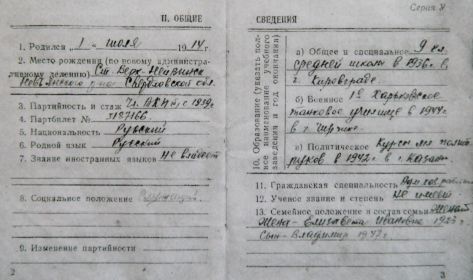 II. ОБЩИЕ
1. Родился „1" июля 1914 г.
2. Место рождения (по новому админист-
ративному делению) Ст. Верх-Нейвинск
Невьянского р-на Свердловской обл.
3. Партийность и стаж Чл. ВКП(б) с 1939 г.
4. Партбилет №
5. Национальность Русский
6. Родной язык Русский
7. Знание иностранных языков не владеет
8. Социальное положение Служащий
9. Изменение партийности
2
Серия У
СВЕДЕНИЯ
10. Образование (указать пол-
ное наименование учебного
заведения и год окончания)
а) Общее и специальное 9 кл.
средней школы в 1936 г. в
г. Кировграде.
б) Военное 1е Харьковское
танковое училище в 1944
в г. Чирчик.
в) Политическое Курсы мл. полит
руков в 1942 г. в г. Казани.
11. Гражданская специальность
12. Ученое звание и степень не имеет
13. Семейное положение и состав семьи Женат
Жена - Елизавета Ивановна 1923
Сын - Владимир 1947 г.
3